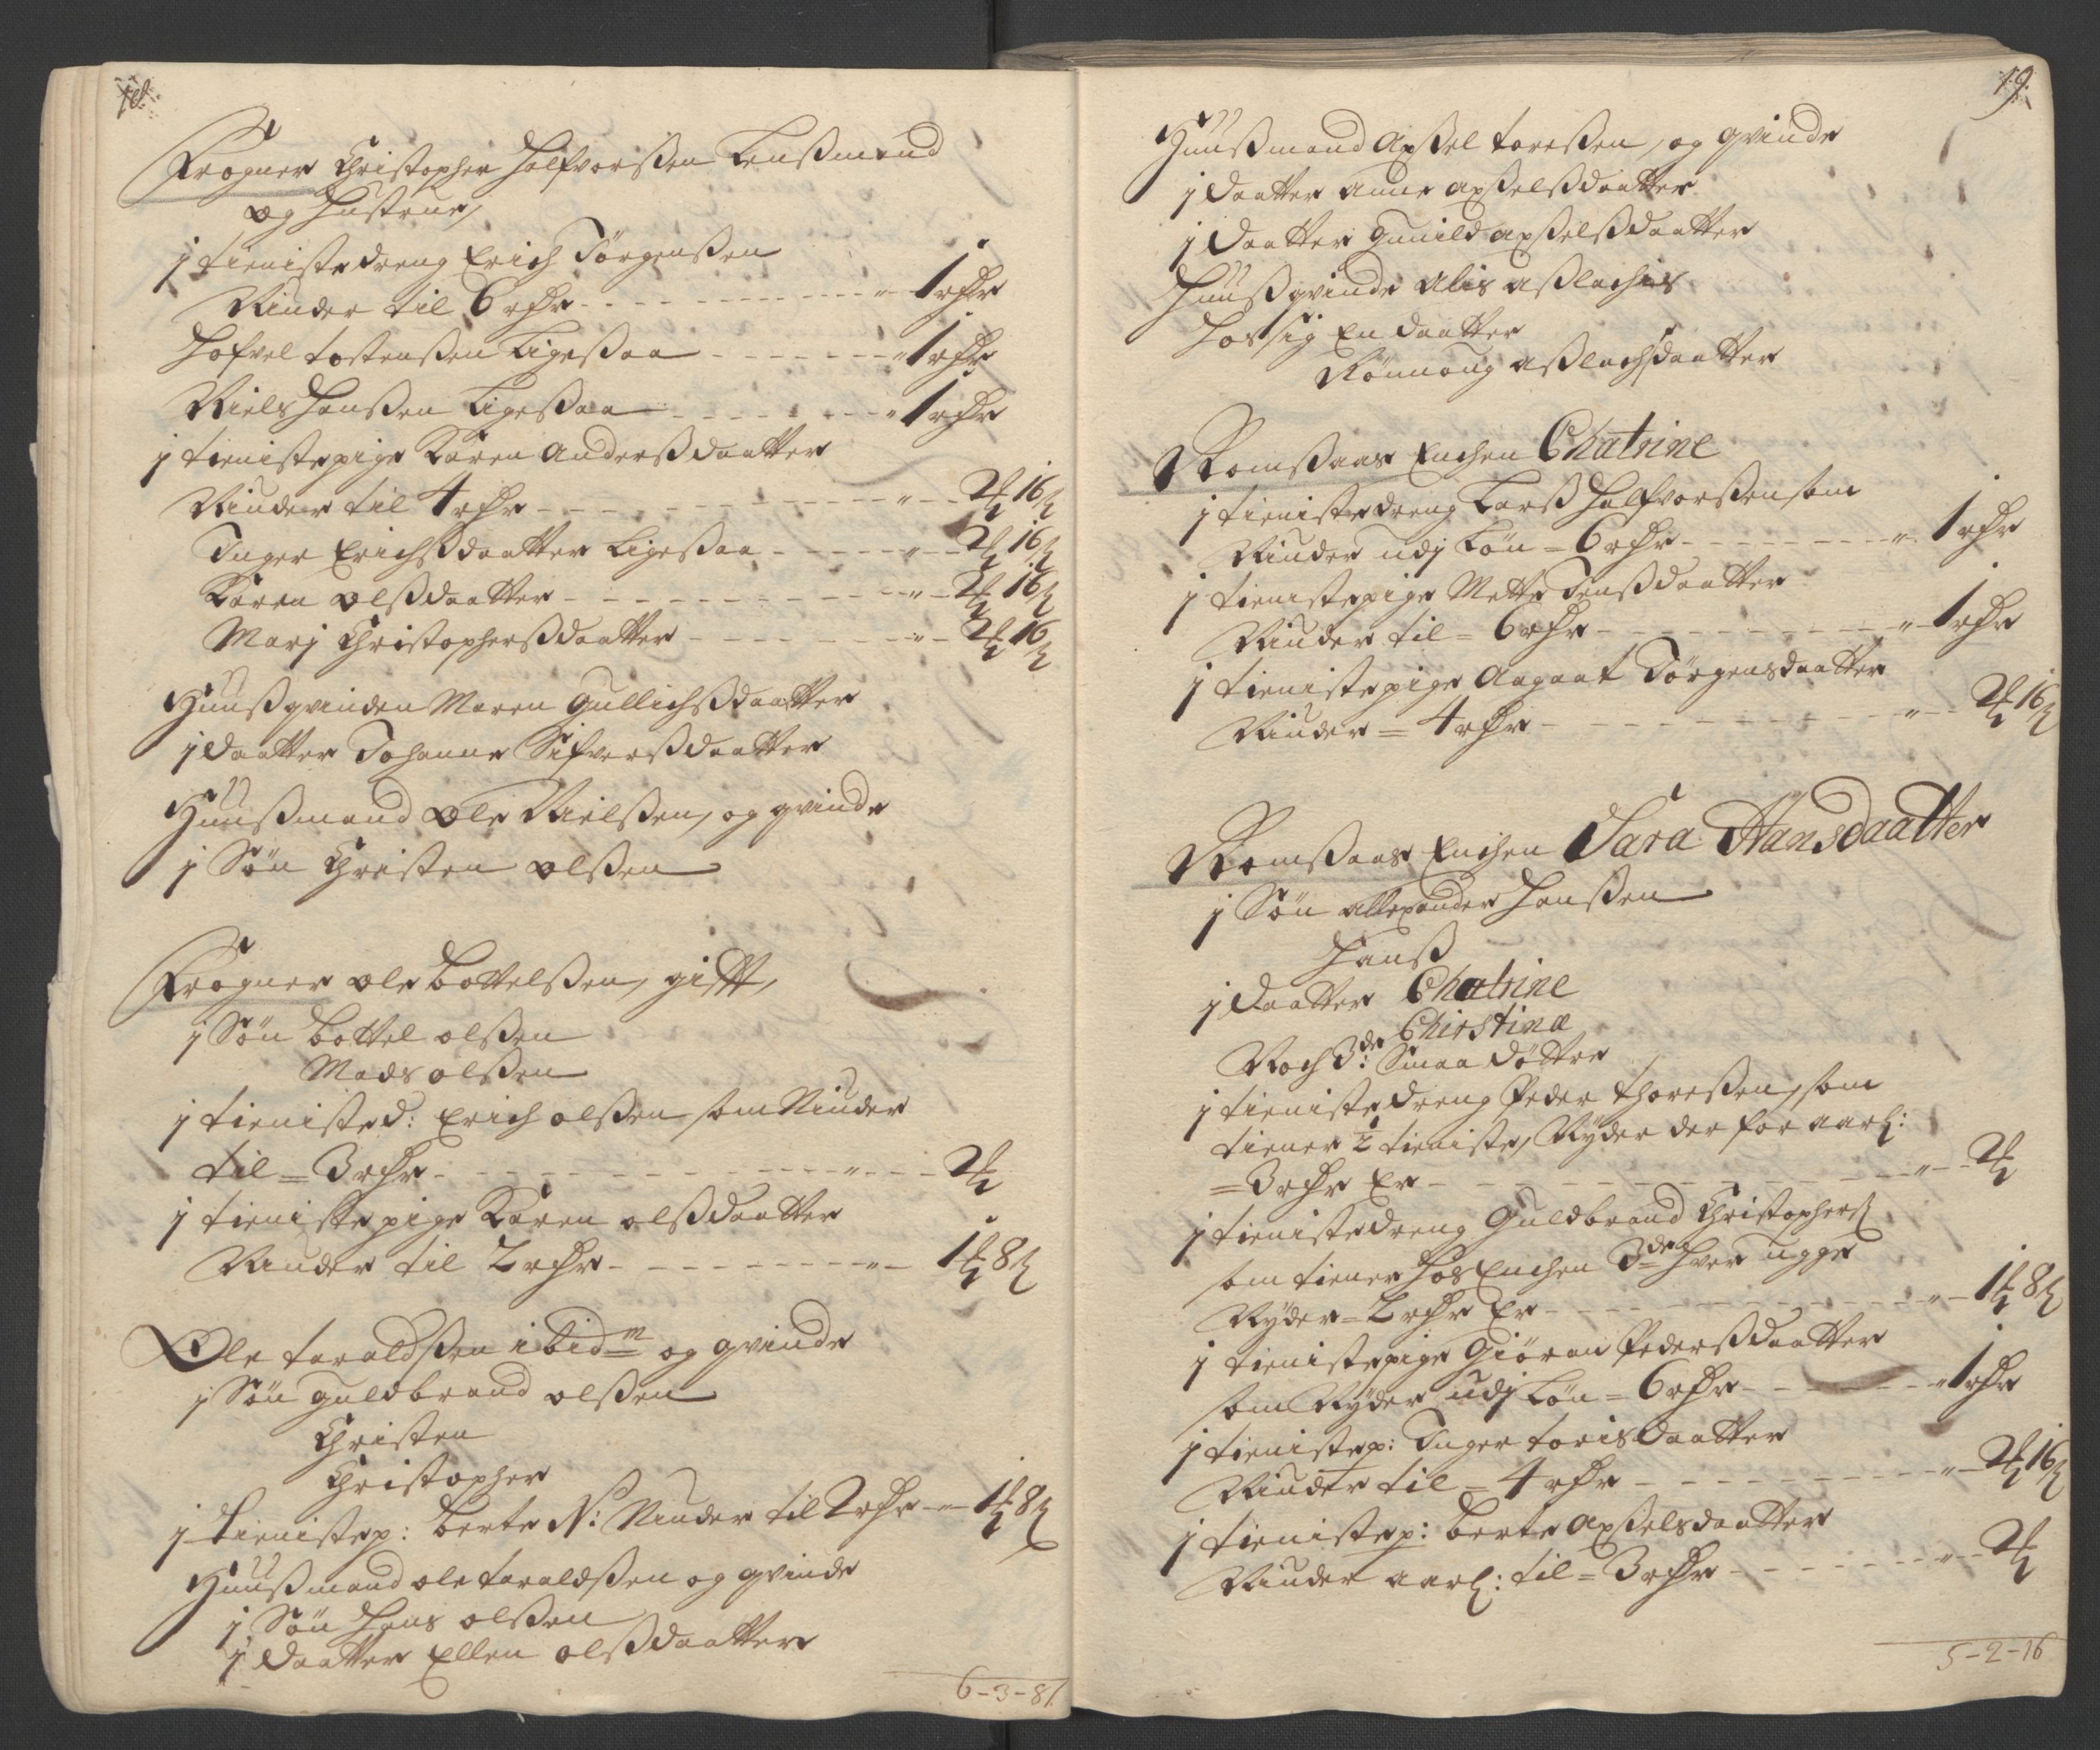 18.
Frogner Christopher Halfvorßen Lenßmand
og Hustrue,
j tienistedreng Erich Jörgenßen
Niuder til 6 rdr - - - " 1 rdr
Hofvel tostenßen Ligeßaa - - - " 1 rdr
Niels Hanßen Ligeßaa - - - " 1 rdr
j tienistepige Karen Anderßdaatter
Niuder til 4 rdr - - - " - 2 ort 16 s
Inger Erichßdaatter Ligeßaa - - - " - 2 ort 16 s
Karen olßdaatter - - - " - 2 ort 16 s
Marj Christopherßdaatter - - - " - 2 ort 16 s
Huußqvinden Maren Gullichßdaatter
j daatter Johanne Sifverßdaatter
Huußmand Ole Nielßen, og qvinde
j Sön Christen olßen
Frogner ole bottelßen, gifft,
j Sön bottel olßen
Mads olßen
j tienisted: Erich olßen som Niuder
til = 3 rdr - - - " - 2 ort
j tieniste pige Karen olßdaatter
Niuder til 2 rdr - - - " - 1 ort 8 s
Ole taraldßen ibidm og qvinde
j Sön guldbrand olßen
Christen
Christopher
j tienistep: berte N: Niuder til 2 rdr - " - 1 ort 8 s
Huußmand ole taraldßen og qvinde
j Sön Hans olßen
j daatter Ellen olßdaatter
6 - 3 - 8 /
19.
Huußmand Axßel toreßen, og qvinde
j daatter Anne axßelßdaatter
j daatter gunild axßelßdaatter
Huußqvinde Alis aßlachis
Hos sig En daatter
Rönnoug aßlachsdaatter
Romßaas Enchen Chatrine
j tienistedreng Larß Halfvorßen som
Niuder udj Lön = 6 rdr - - - " 1 rdr
j tienistepige Mette Jenßdaatter
Niuder til = 6 rdr - - - " 1 rdr
j tienistepige Aagaat Jörgensdaatter
Niuder = 4 rdr - - - " - 2 ort 16 s
Romßaas Enchen Sara Hansdaatter
j Sön allexander Hanßen
Hanß
j daatter Chatrine
Chirstina
Noch 3de: Smaa döttre
j tienistedreng Peder thoreßen, som
tiener ½ tieniste, Nyder der for aarl:
= 3 rdr Er - - - " - 2 ort
j tienistedreng Guldbrand Christophers
som tiener hos Enchen 3de hver ugge
Nyder = 2 rdr Er - - - " - 1 ort 8 s
j tienistepige Giöran Pederßdaatter
som Nyder udj Lön = 6 rdr - - - " 1 rdr
j tienistep: Inger torisdaatter
Niuder til = 4 rdr - - - " - 2 ort 16 s
j tienistep: berte Axßelsdaatter
Niuder aarl: til = 3 rdr - - - " - 2 ort
5 - 2 - 16